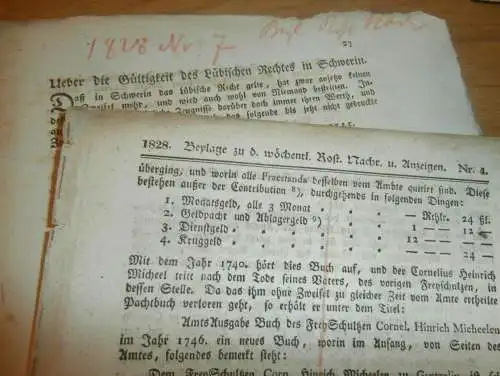 1828 Nr. 7
23
Ueber die Gültigkeit des Lübischen Rechtes in Schwerin.
Daß in Schwerin das lübische Recht gelte, hat zwar anjetzo keinen
Zweifel mehr, und wird auch wohl von Niemand bestritten. In-
Zeugnisse darüber doch immer ihren Werth, und
das folgende bis jetzt nicht gedruckte
1828. Beylage zu d. wöchentl. Rost. Nachr. u. Anzeigen. Nr. 4.
überging, und worin alle Praestanda desselben vom Ambte quitirt sind. Diese
bestehen außer der Contribution 8), durchgehends in folgenden Dingen:
1. Monatsgeld, alle 3 Monat . . . — Rthlr. 24 ßl.
2. Geldpacht und Ablagergeld 9) . . — — 12 —
3. Dienstgeld . . . . . 1 — 12 —
4. Kruggeld . . . . . — — 24 —
Mit dem Jahr 1740. hört dies Buch auf, und der Cornelius Heinrich
Micheel tritt nach dem Tode seines Vaters, des vorigen Freyschulzen, in
dessen Stelle. Da das ihm ohne Zweifel zu gleicher Zeit vom Amte ertheilte
Pachtbuch verloren geht, so erhält er unter dem Titel:
Amts Ausgabe Buch des FreySchultzen Cornel. Hinrich Micheelen
im Jahr 1746. ein neues Buch, worin im Anfang, von Seiten des
Amtes, folgendes bemerkt steht:
Dem FreySchultzen Corn. Hinrich Micheelen zu